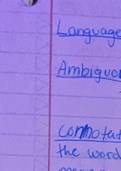 Language
Ambiguo
Connotat
the word